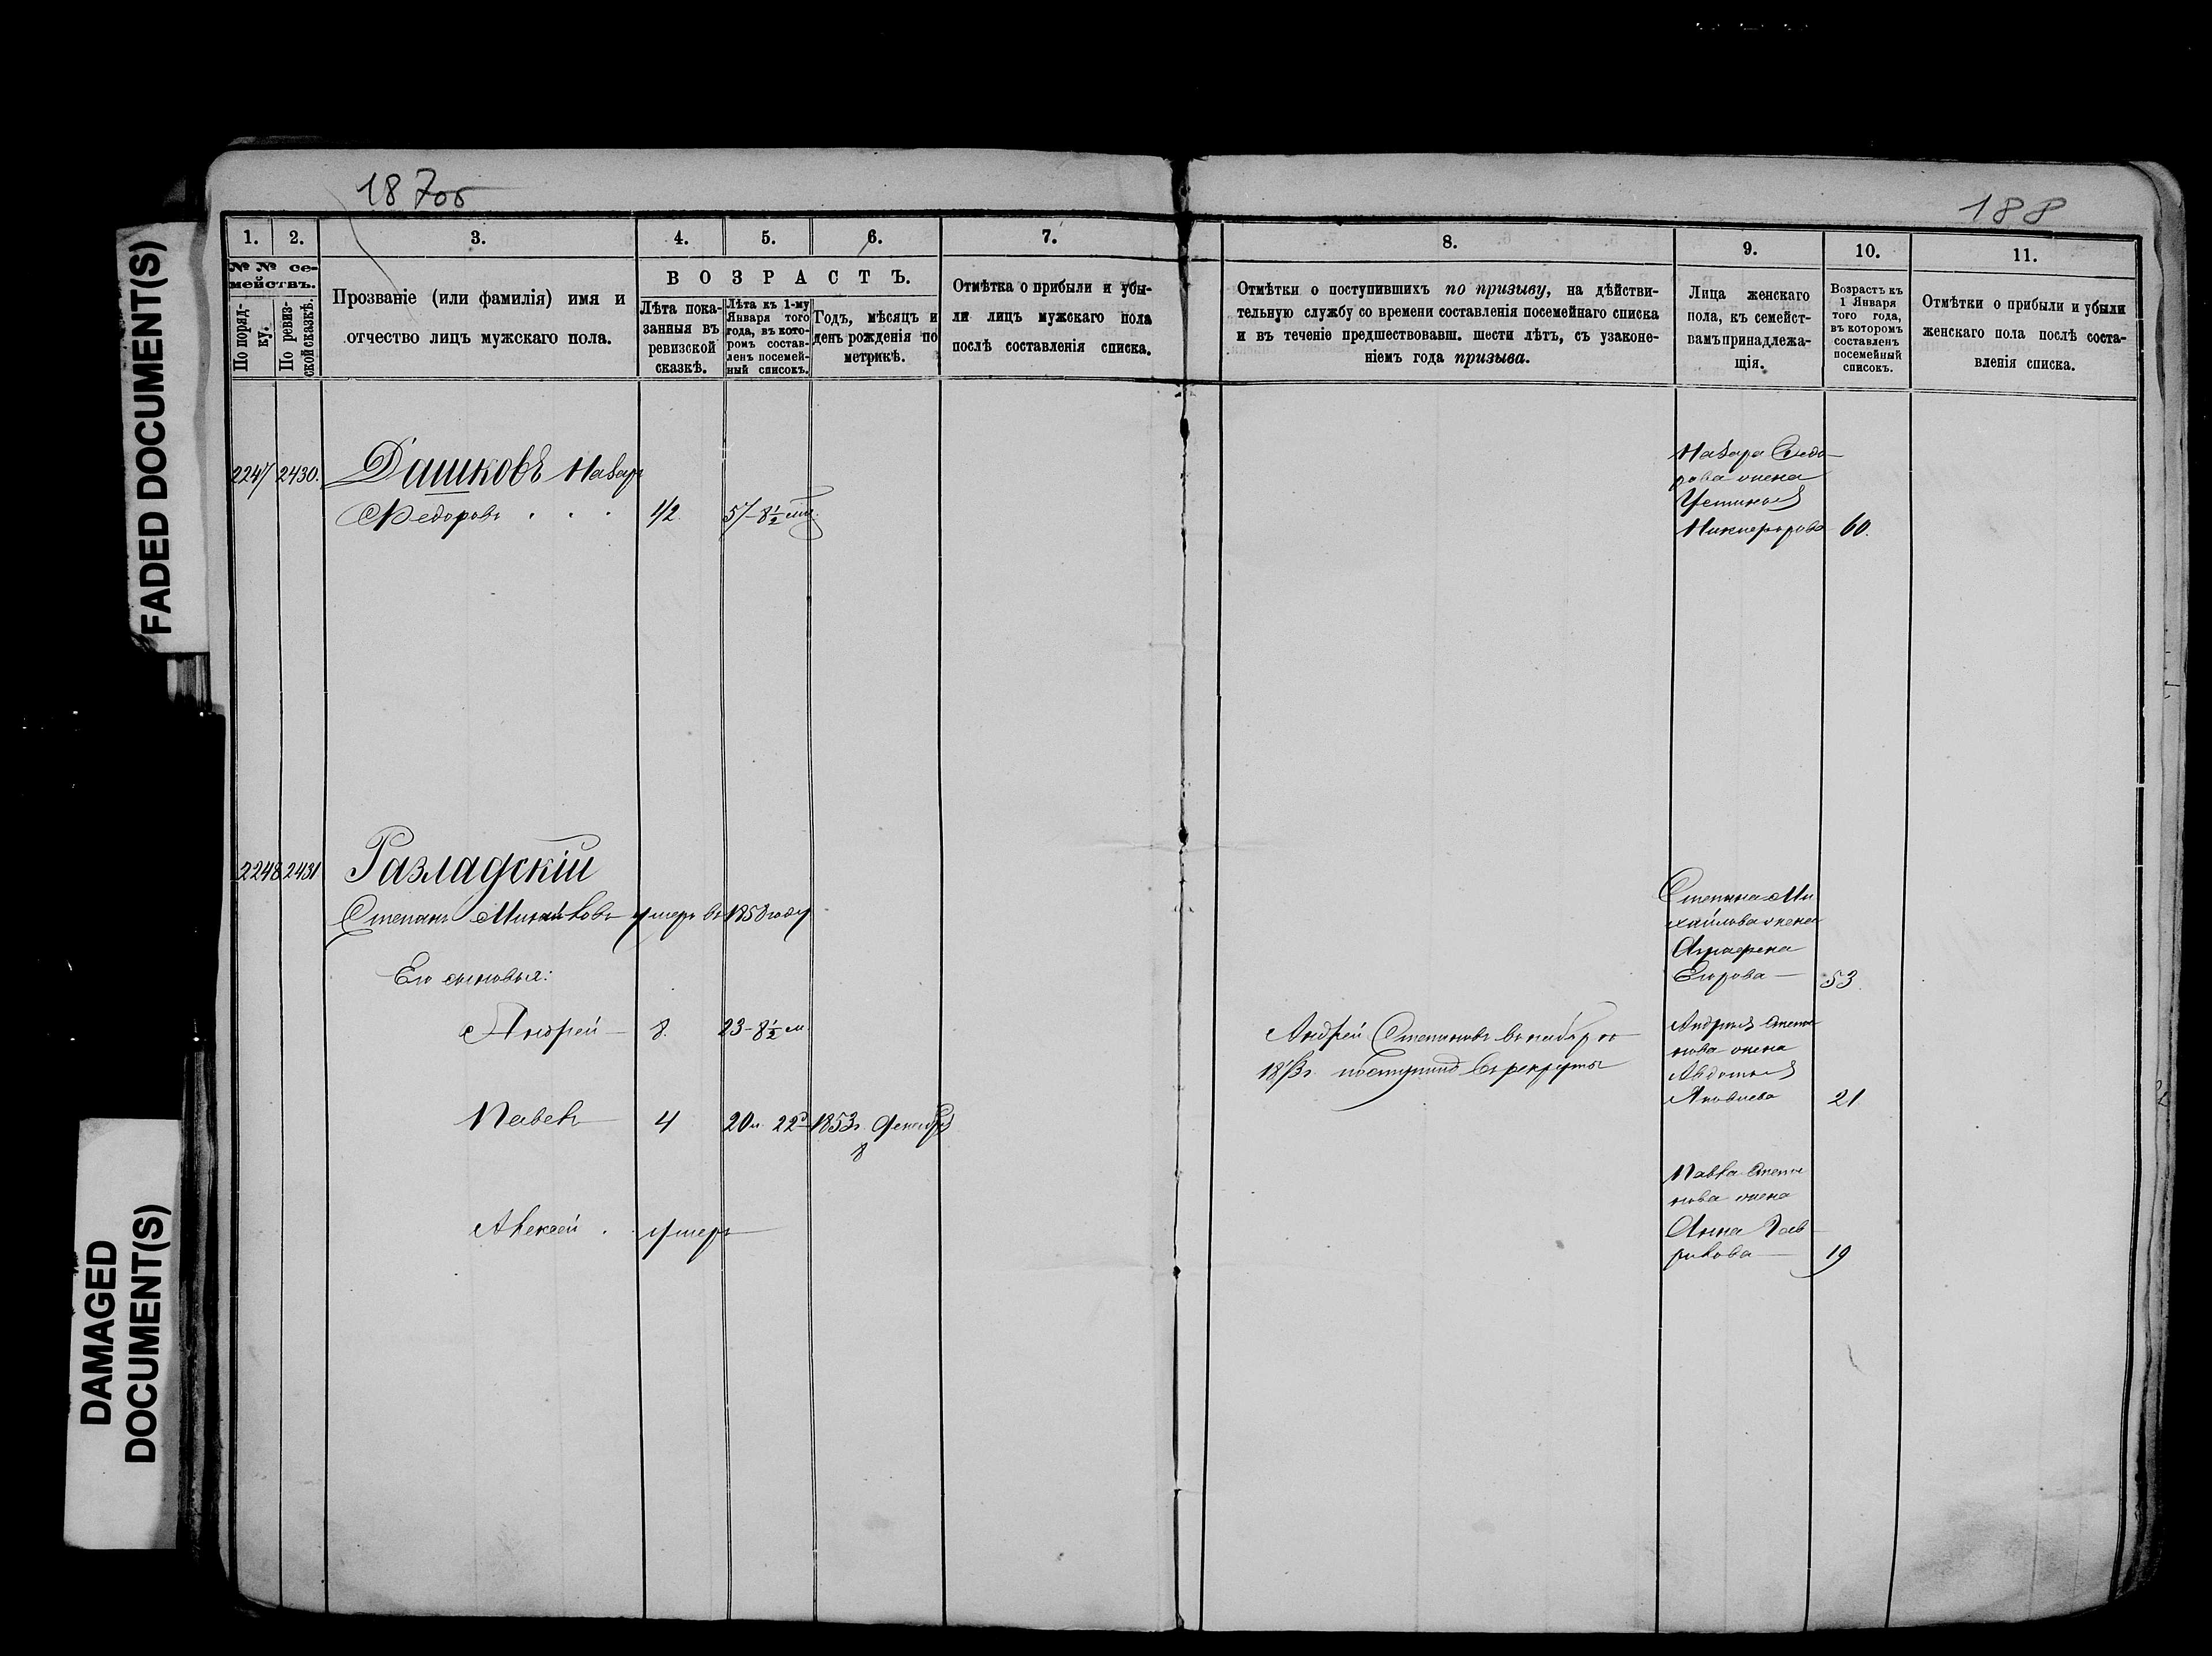 FADED DOCUMENT(S)
DAMAGED
DOCUMENT(S)
187об
188
1.
2.
3.
4.
5.
6.
7.
8.
9.
10.
11.
№ № се-
мействъ.
По поряд-
ку.
По ревиз-
ской сказкѣ.
Прозваніе (или фамилія) имя и
отчество лицъ мужскаго пола.
ВОЗРАСТЪ.
Лѣта пока-
занныя въ
ревизской
сказкѣ.
Лѣта къ 1-му
Января того
года, въ кото-
ромъ состав-
ленъ посемей-
ный списокъ.
Годъ, мѣсяцъ и
день рожденія по
метрикѣ.
Отмѣтка о прибыли и убы-
ли лицъ мужскаго пола
послѣ составленія списка.
Отмѣтки о поступившихъ по призыву, на дѣйстви-
тельную службу со времени составленія посемейнаго списка
и въ теченіе предшествовавш. шести лѣтъ, съ узаконе-
ніемъ года призыва.
Лица женскаго
пола, къ семейст-
вамъ принадлежа-
щія.
Возрастъ къ
1 Января
того года,
въ которомъ
составленъ
посемейный
списокъ.
Отмѣтки о прибыли и убыли
женскаго пола послѣ соста-
вленія списка.
2247 2430. Дашковъ Назаръ
Федоровъ 42 57-8½ м.
Назара Федо-
рова жена
Устинья
Никифорова 60.
2248 2431 Разладскій
Степанъ Михайловъ умеръ въ 1858 году
Его сыновья:
Андрей 8. 23-8½ м.
Павелъ 4 20 л. 22 д. 1853 г. Декабря
8
Алексѣй умеръ
Андрей Степановъ въ ноябрѣ
1873 г. поступилъ въ рекруты
Степана Ми
хайлова жена
Аграфена
Егорова 53
Андрея Степа
нова жена
Авдотья
Яковлева 21
Павла Степа
нова жена
Анна Гав
рилова 19